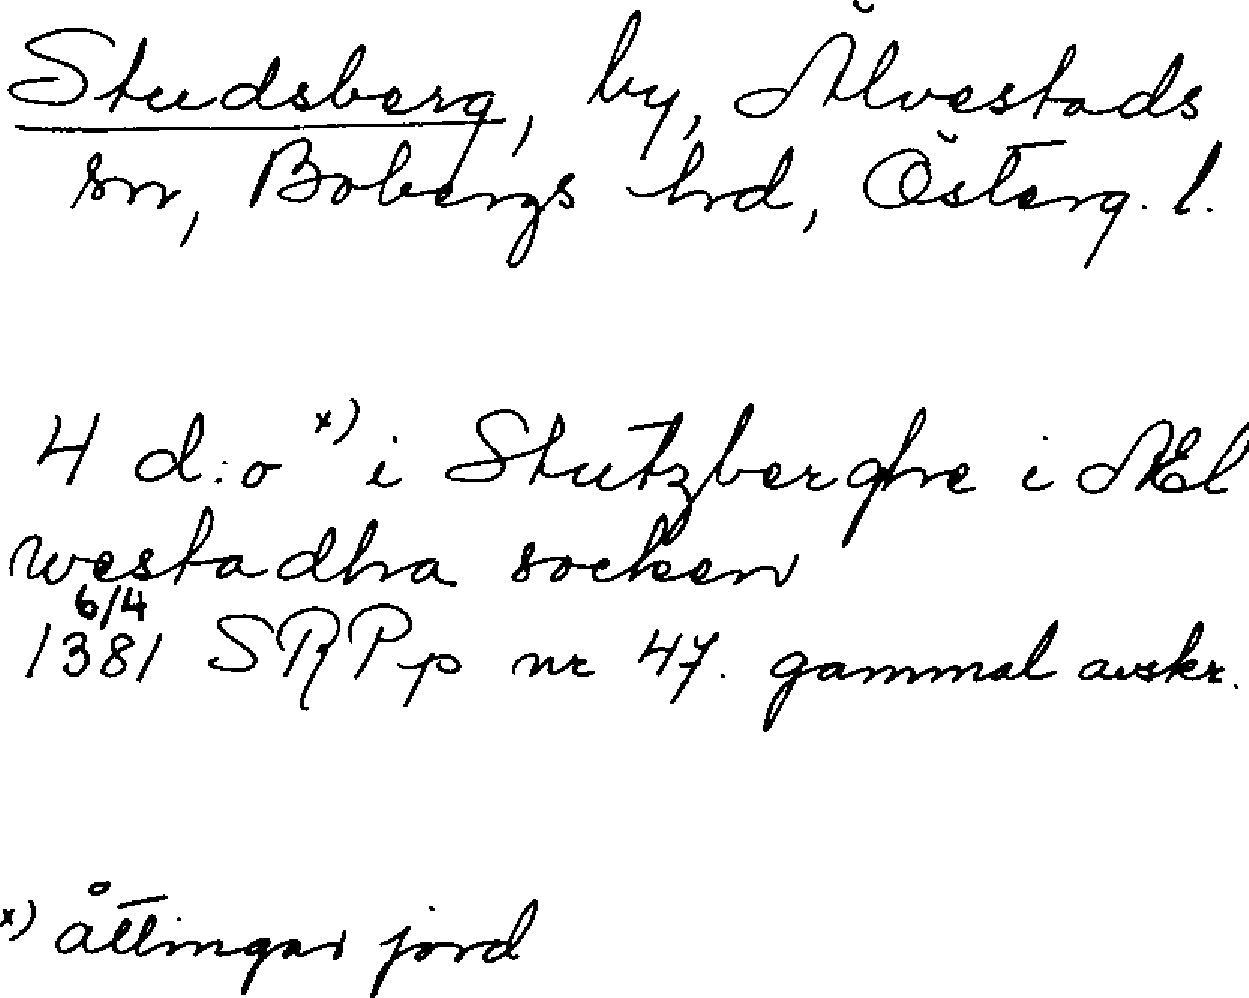 Studsberg, by, Älvestads
sn, Bobergs hrd, Österg. l.
4 d:o x) i Stutzberghe i Æl
westadha socken
6/4
1381 SRPp nr 47. gammal avskr.
x) åttingar jord